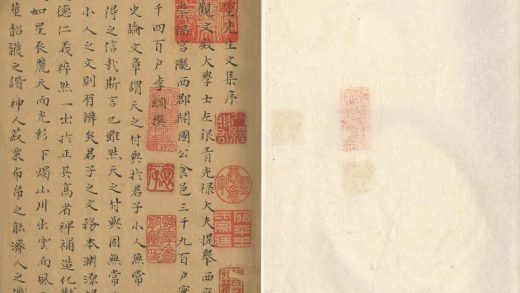 先生文集序
觀文殿大學士左銀青光祿大夫提舉西
崇福宮隴西郡開國公食邑三千九百戶實
千四百戶李綱撰
史論文章謂天之付與於君子小人無常
得之信哉斯言也雖然天之付與固無常
小人之文則有辨矣君子之文務本淵源
德仁義粹然一出於正其高者裨補造化
如星辰麗天而光彩下燭山川出雲而風
韶濩之諧神人菽粟布帛之能濟人之